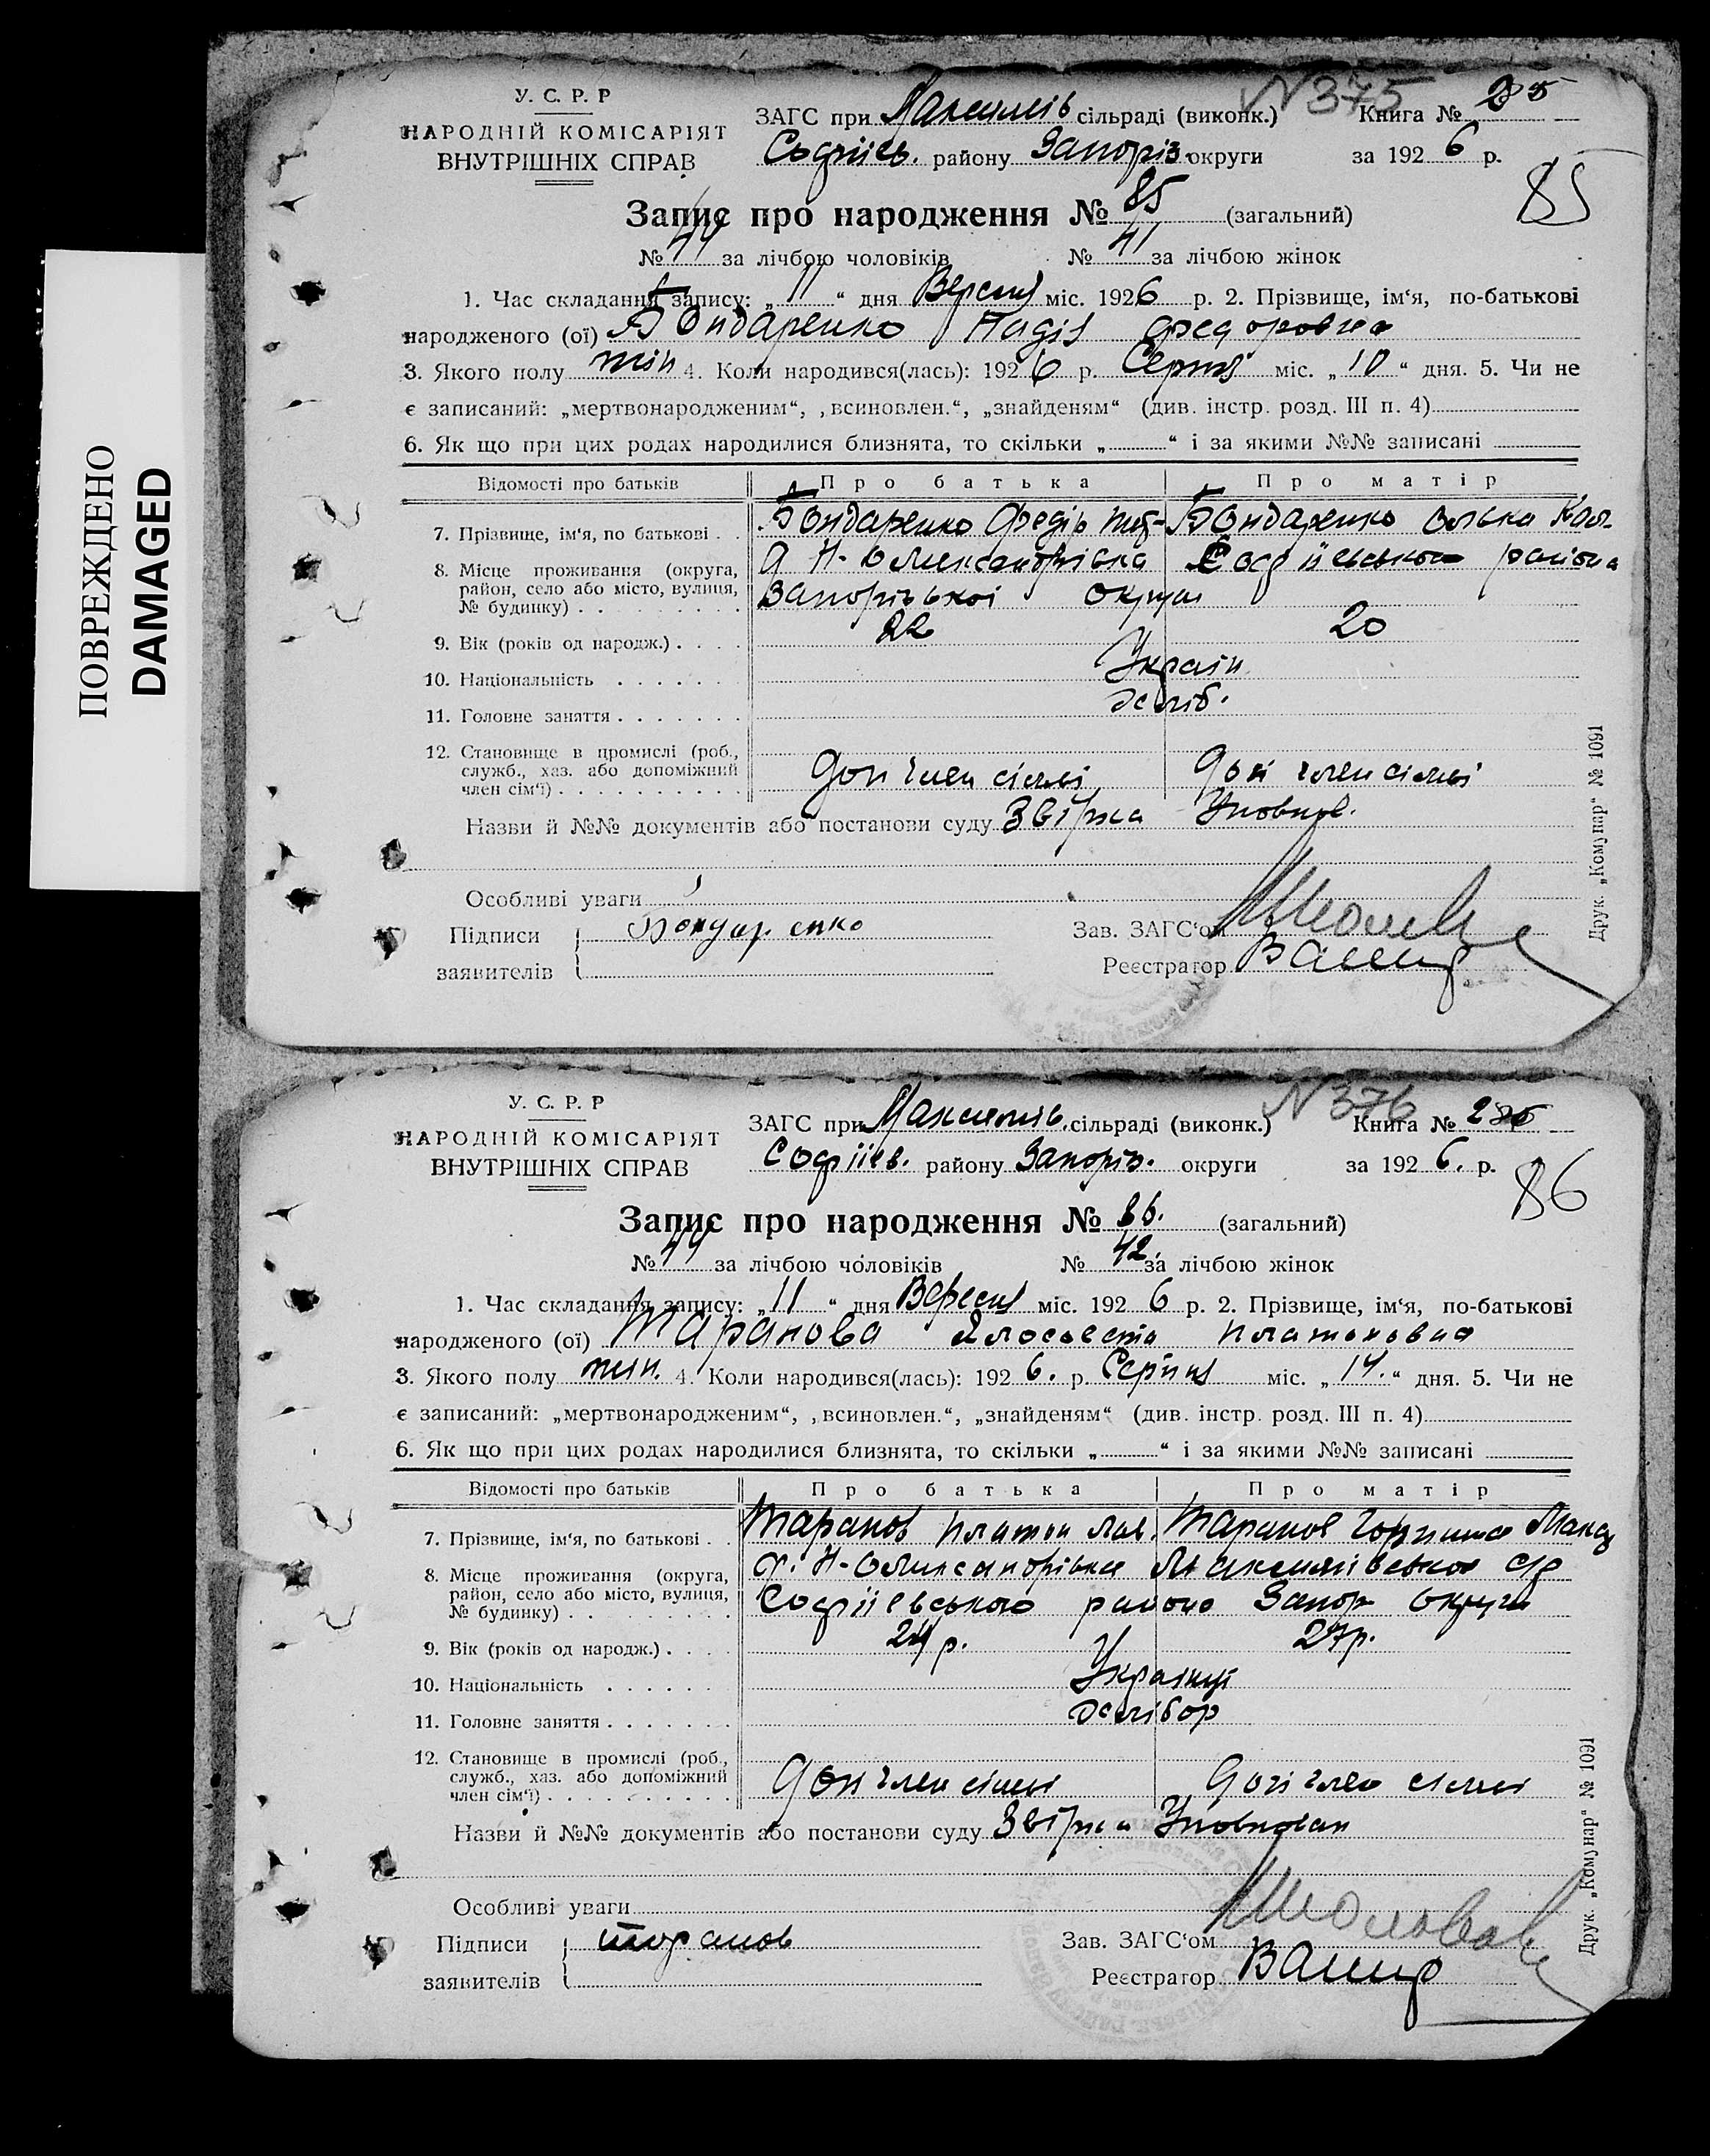 ПОВРЕЖДЕНО
DAMAGED
У. С. Р. Р
НАРОДНІЙ КОМІСАРІЯТ
ВНУТРІШНІХ СПРАВ
N 375
ЗАГС при сільраді (виконк.) Книга №
Софіїв. району Запоріз. округи за 1926 р.
85
Запис про народження № 85 (загальний)
№ 44 за лічбою чоловіків № 41 за лічбою жінок
1. Час складання запису: „11“ дня Вересня міс. 1926 р. 2. Прізвище, ім‘я, по-батькові
народженого (ої) Бондаренко Надія Федоровна
3. Якого полу жін 4. Коли народився(лась): 1926 р. Серпня міс. „10“ дня. 5. Чи не
є записаний: „мертвонародженим“, „всиновлен.“, „знайденям“ (див. інстр. розд. III п. 4)
6. Як що при цих родах народилися близнята, то скільки „ “ і за якими №№ записані
Відомості про батьків Про батька Про матір
7. Прізвище, ім‘я, по батькові . . Бондаренко Федір Бондаренко
8. Місце проживання (округа, Н-Олександрівка Софіївського района
район, село або місто, вулиця, Запорізької округи
№ будинку) . . . . . . . .
9. Вік (років од народж.) . . . . 22 20
10. Національність . . . . . . Україн
11. Головне заняття . . . . . . . хліб.
12. Становище в промислі (роб.,
служб., хаз. або допоміжний доп член сімьі доп член сімьі
член сім‘ї) . . . . . . . . . .
Назви й №№ документів або постанови суду Звірка Уповнов.
Особливі уваги
Підписи Бондаренко Зав. ЗАГС‘ом
заявителів Реєстратор
Друк. „Комунар“ № 1091
У. С. Р. Р
НАРОДНІЙ КОМІСАРІЯТ
ВНУТРІШНІХ СПРАВ
N 376
ЗАГС при сільраді (виконк.) Книга №
Софіїв. району Запоріз. округи за 1926. р.
86
Запис про народження № 86. (загальний)
№ 44 за лічбою чоловіків № 42 за лічбою жінок
1. Час складання запису: „11“ дня Вересня міс. 1926 р. 2. Прізвище, ім‘я, по-батькові
народженого (ої) Таранова Платоновна
3. Якого полу жін. 4. Коли народився(лась): 1926. р. Серпня міс. „14.“ дня. 5. Чи не
є записаний: „мертвонародженим“, „всиновлен.“, „знайденям“ (див. інстр. розд. III п. 4)
6. Як що при цих родах народилися близнята, то скільки „ “ і за якими №№ записані
Відомості про батьків Про батька Про матір
7. Прізвище, ім‘я, по батькові . . Таранов Платон Таранов
8. Місце проживання (округа, Н-Олександрівка
район, село або місто, вулиця, Софіївського району Запор округи
№ будинку) . . . . . . . .
9. Вік (років од народж.) . . . . 24 р. 27 р.
10. Національність . . . . . . Українці
11. Головне заняття . . . . . . . хлібор
12. Становище в промислі (роб.,
служб., хаз. або допоміжний доп член сімьі доп член сімьі
член сім‘ї) . . . . . . . . . .
Назви й №№ документів або постанови суду Звірка Уповноваж
Особливі уваги
Підписи Таранов Зав. ЗАГС‘ом
заявителів Реєстратор
Друк. „Комунар“ № 1091